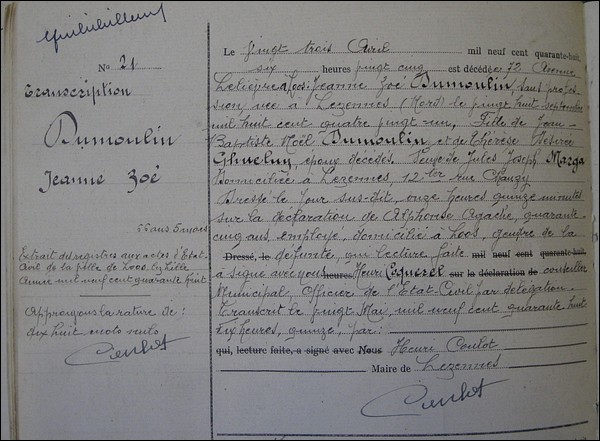 No 21
Transcription
Dumoulin
Jeanne Zoé
66 ans 5 mois
Extrait des registres aux actes d'Etat-
Civil de la ville de Loos, lez Lille
Année mil neuf cent quarante huit
Approuvons la rature de :
dix huit mots nuls
Coulot
Le vingt trois Avril mil neuf cent quarante-huit,
six heures vingt cinq est décédée 72 Avenue
à Loos Jeanne Zoé Dumoulin, sans profes-
sion, née à Lezennes (Nord) le vingt huit septembre
mil huit cent quatre vingt un, Fille de Jean-
Baptiste Noël Dumoulin, et de Thérèse Désirée
époux décédés, Veuve de Jules Joseph Marga
Domiciliée à Lezennes, 12 ter rue Chanzy
Dressé le jour sus-dit, onze heures quinze minutes
sur la déclaration de Alphonse Agache, quarante-
cinq ans, employé, domicilié à Loos, gendre de la
Dressé, le défunte, qui lecture faite mil neuf cent quarante-huit
à signé avec nous heures Henri Coquerel sur la déclaration de conseiller
Municipal, Officier de l'Etat-Civil par délégation.
Transcrit le vingt Mai, mil neuf cent quarante huit
dix heures, quinze, par :
qui, lecture faite, a signé avec Nous Henri Coulot
Maire de Lezennes
Coulot